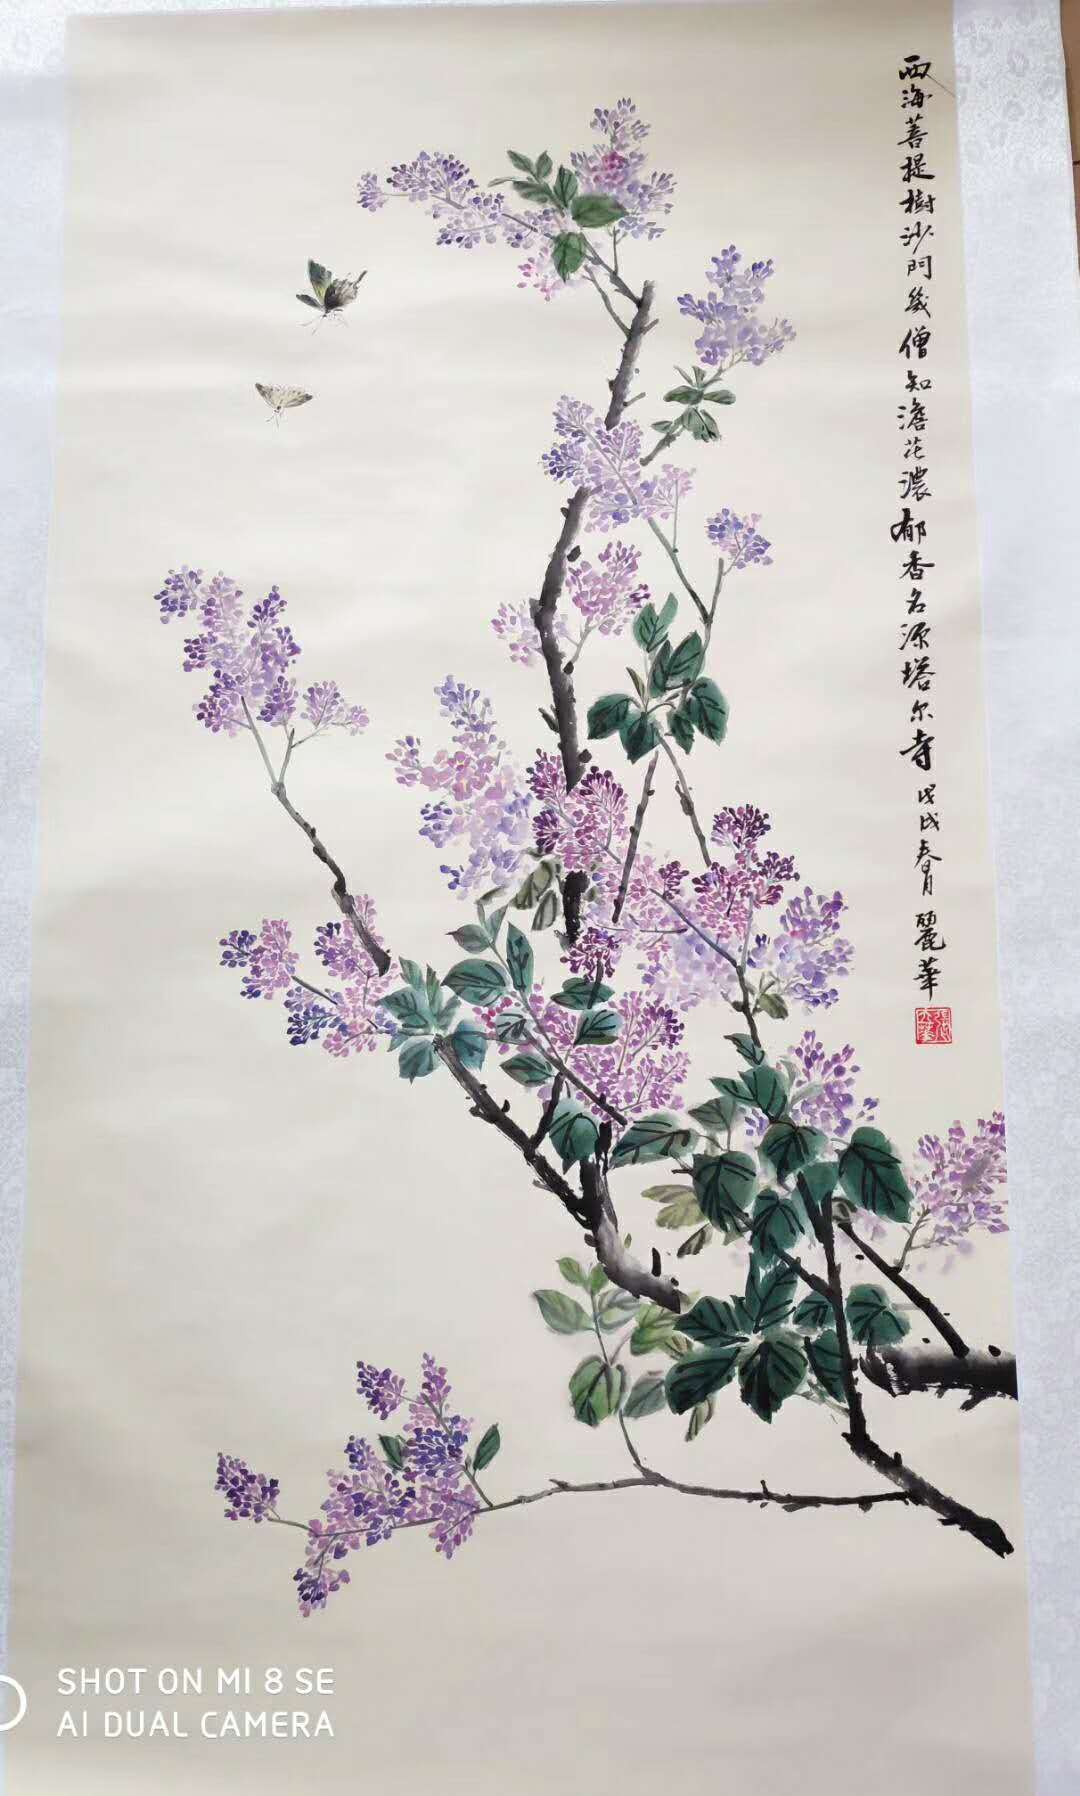 西海菩提樹沙門幾僧知澹花濃郁香名源塔尔寺戊戌春月麗華
SHOT ON MI 8 SE
AI DUAL CAMERA